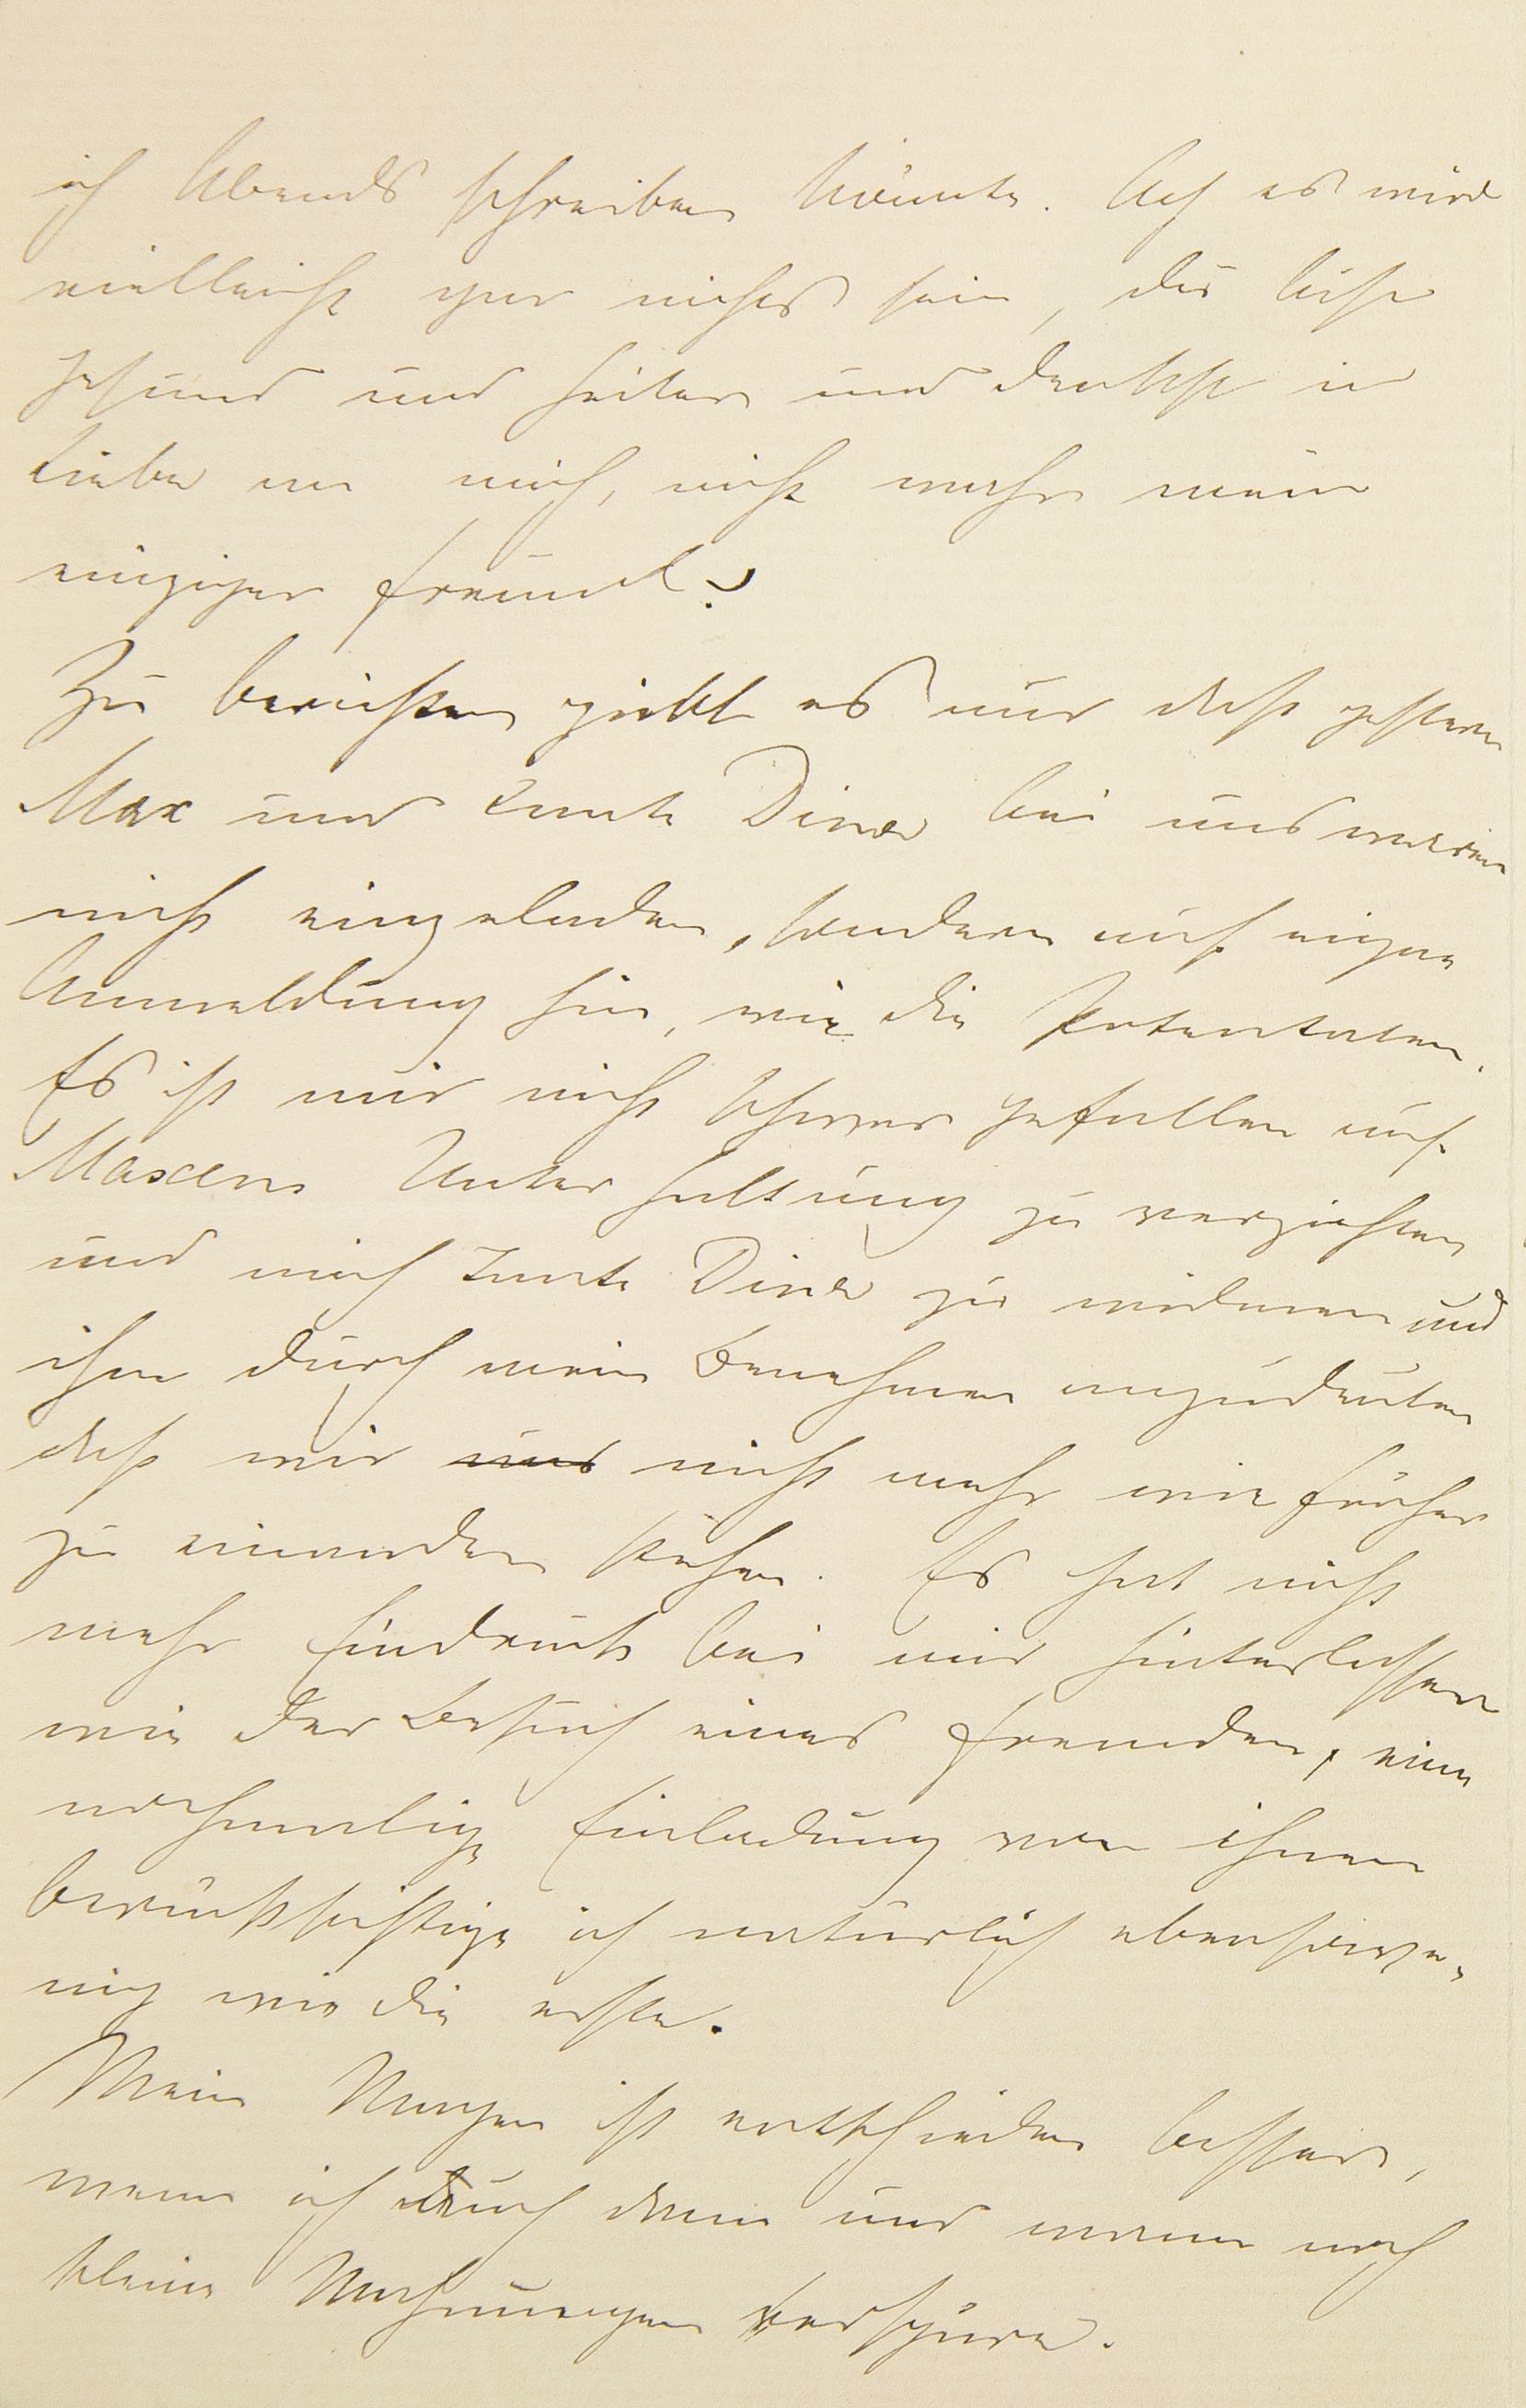 ich Abends schreiben könnte. Ach es wird
vielleicht gar nichts sein, du bist
gesund und heiter und denkst in
Liebe an mich, nicht wahr mein
einziger Freund?
Zu berichten giebt es nur daß gestern
Max und Tante Dina bei uns waren
nicht eingeladen, sondern auf eigene
Anmeldung hin, wie die Potentaten.
Es ist mir nicht schwer gefallen auf
Maxens Unterhaltung zu verzichten
und mich Tante Dina zu widmen und
ihm durch mein Benehmen anzudeuten
daß wir uns nicht mehr wie früher
zu einander stehen. Es hat nicht
mehr Eindruck bei mir hinterlassen
wie der Besuch eines Fremden, eine
nochmalige Einladung von ihnen
berücksichtige ich natürlich ebensowe-
nig wie die erste.
Mein Magen ist entschieden besser,
wenn ich auch dann und wann noch
kleine Mahnungen verspüre.